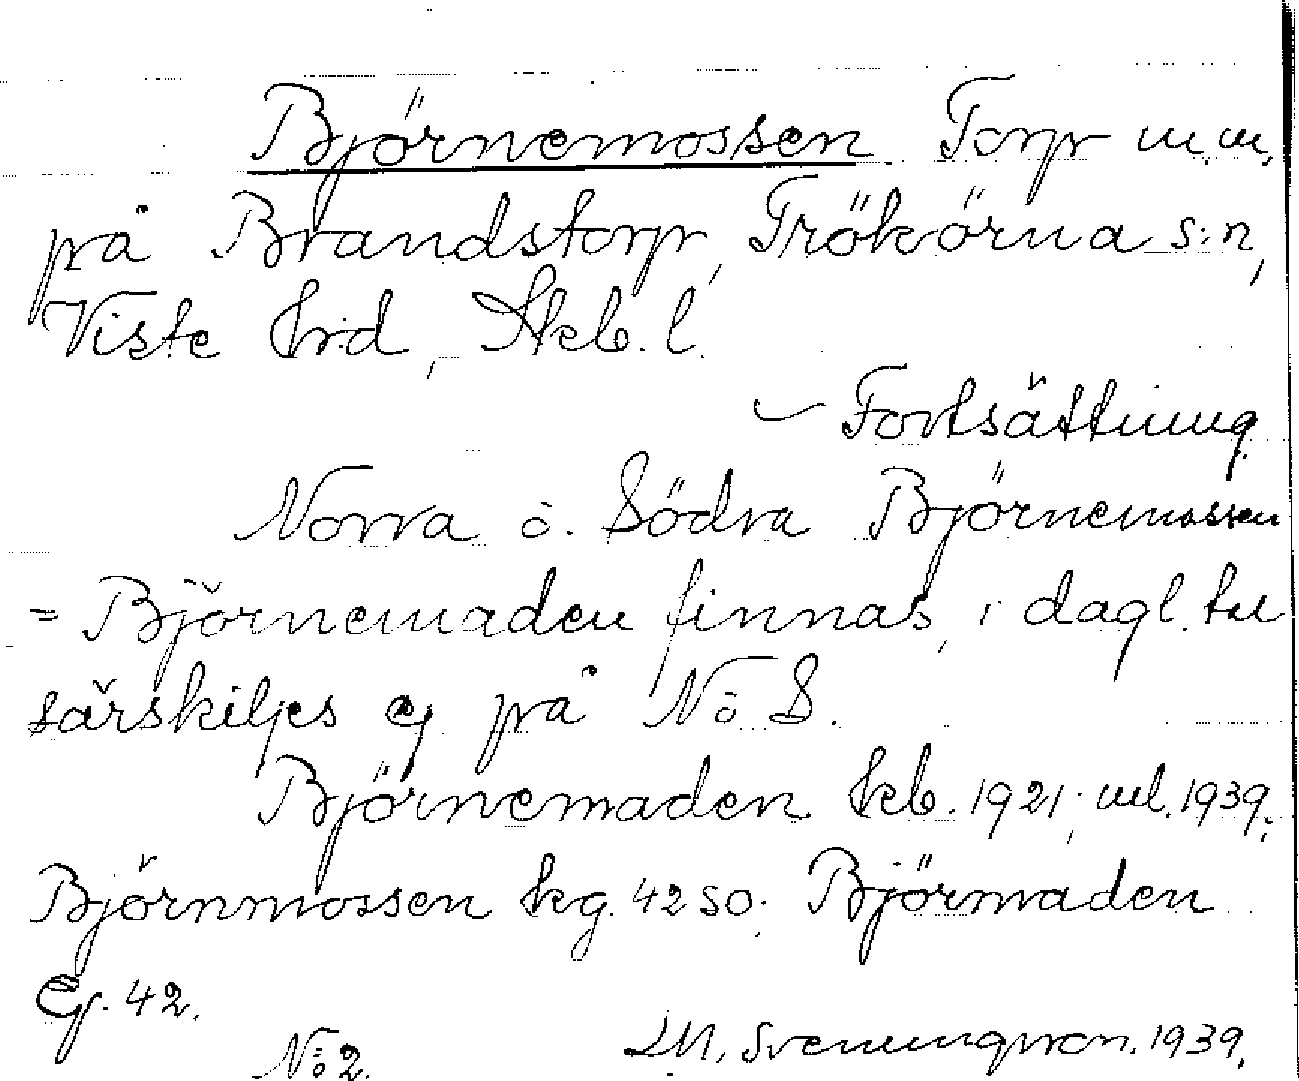 Björnemossen Torp m.m.
på Brandstorp, Trökörna s:n,
Viste hrd, Skb. l.
Fortsättning.
Norra o. Södra Björnemossen
= Björnemaden finnas, i dagl. tal
särskiljes ej på N o S.
Björnemaden kb. 1921; uel. 1939;
Björnmossen kg. 42 SO; Björmaden
Ej. 42.
No 2. D.M. Svenungsson. 1939.